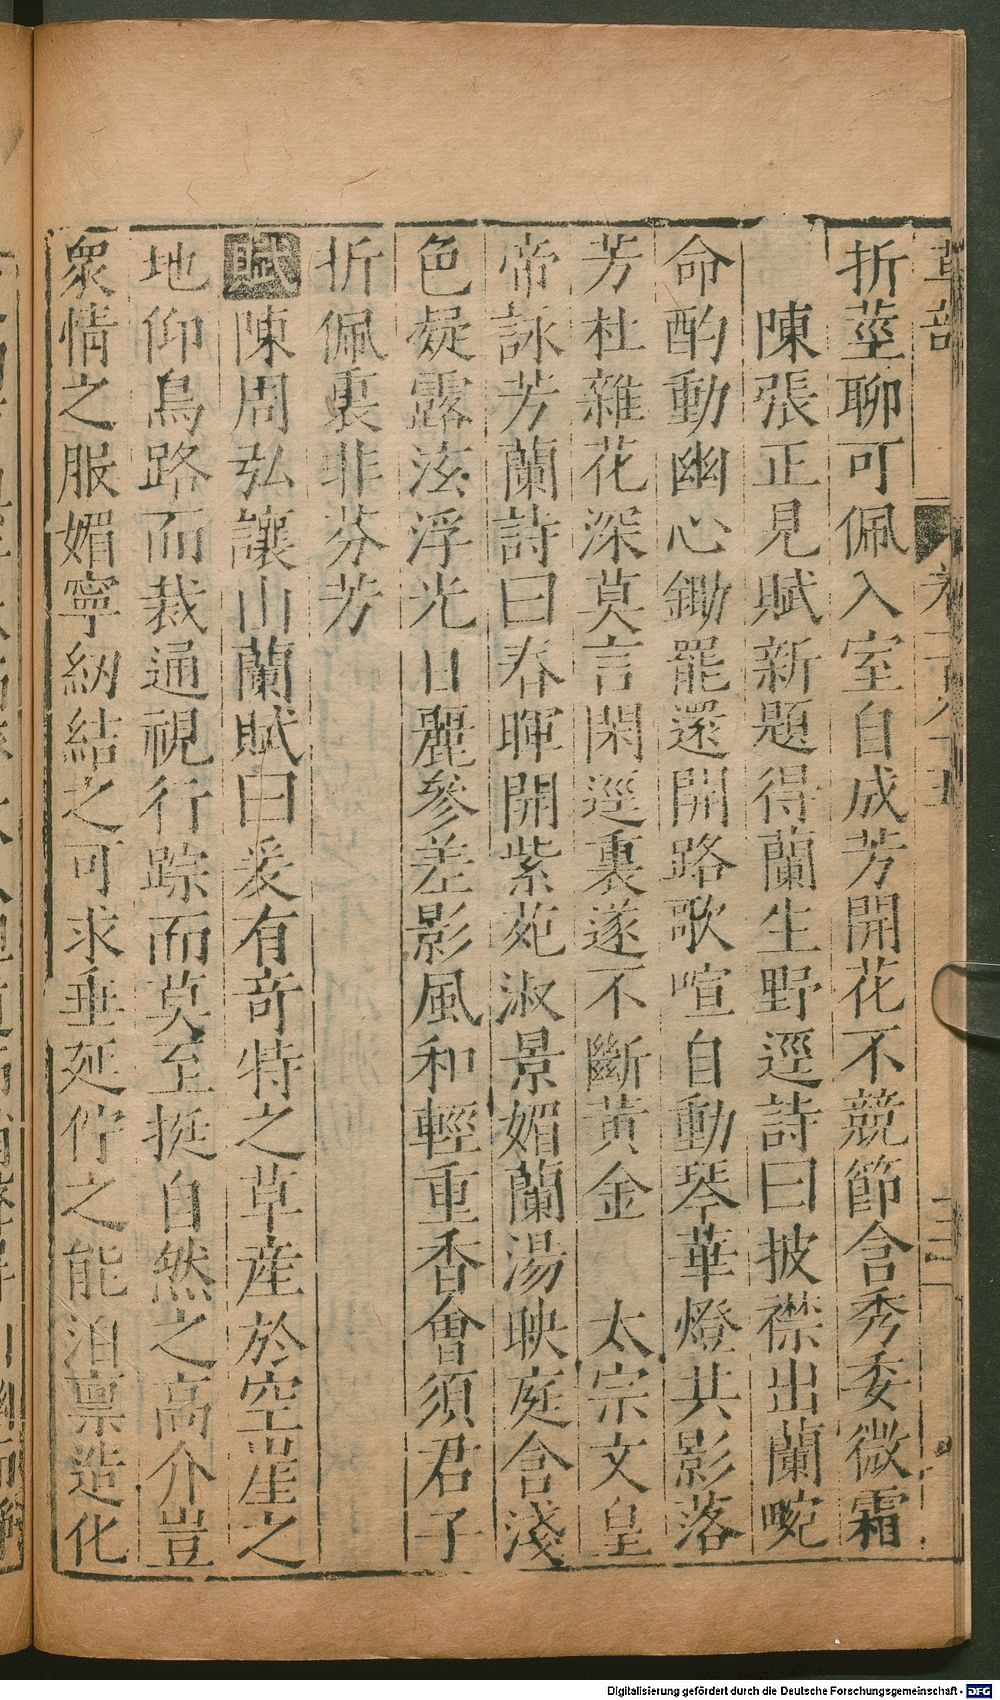 草部
折莖聊可佩入室自成芳開花不競節含秀委微霜
陳張正見賦新題得蘭生野逕詩曰披襟出蘭畹
命酌動幽心鋤罷還開路歌喧自動琴華燈共影落
芳杜雜花深莫言閑逕裏遂不斷黃金　太宗文皇
帝詠芳蘭詩曰春暉開紫苑淑景媚蘭湯映庭含淺
色凝露泫浮光日麗參差影風和輕重香會須君子
折佩裏非芬芳
賦陳周弘讓山蘭賦曰爰有奇特之草產於空崖之
地仰鳥路而裁通視行踪而莫至挺自然之高介豈
衆情之服媚寧納結之可求垂延佇之能泊禀造化
Digitalisierung gefördert durch die Deutsche Forschungsgemeinschaft - DFG